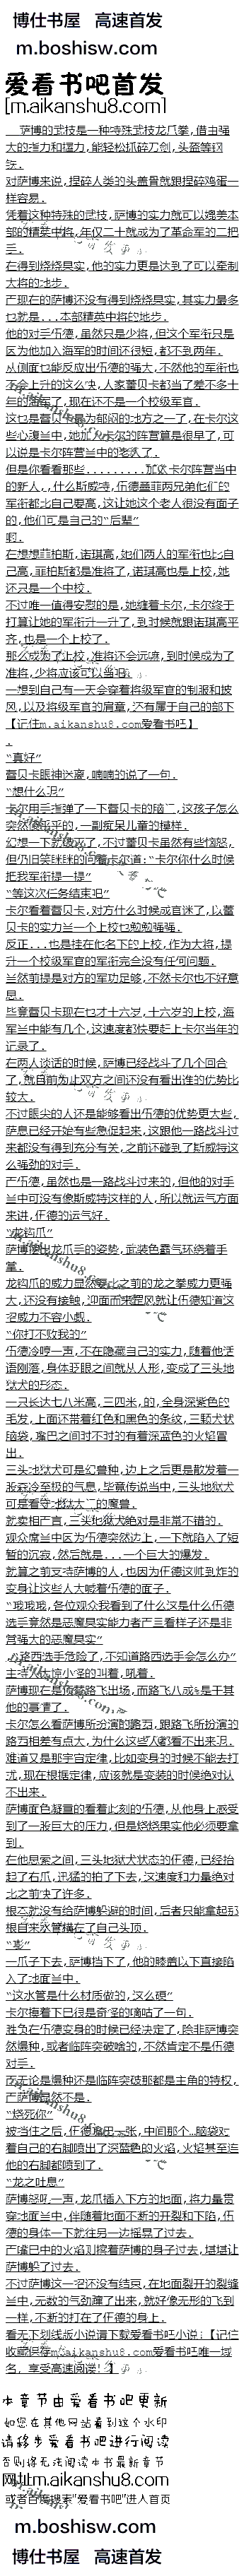 博仕书屋 高速首发
m.boshisw.com
爱看书吧首发
[m.aikanshu8.com]
萨博的武技是一种特殊武技龙爪拳,借由强
大的指力和握力,能轻松抓碎刀剑,头盔等钢
铁.
对萨博来说,捏碎人类的头盖骨就跟捏碎鸡蛋一
样容易.
凭着这种特殊的武技,萨博的实力就可以媲美本
部的精英中将,年仅二十就成为了革命军的二把
手.
在得到烧烧果实,他的实力更是达到了可以牵制
大将的地步.
而现在的萨博还没有得到烧烧果实,其实力最多
也就是...本部精英中将的地步.
他的对手伍德,虽然只是少将,但这个军衔只是
因为他加入海军的时间还很短,都不到两年.
从侧面也能反应出伍德的强大,不然他的军衔也
不会上升的这么快,人家蕾贝卡都当了差不多十
年的海军了,现在还不是一个校级军官.
但是你看看那些.........加入卡尔阵营当中
的新人,,什么斯威特,伍德盖菲两兄弟他们的
军衔都比自己要高,这让她这个老人很没有面子
的,他们可是自己的“后辈”
啊.
在想想菲柏斯,诺琪高,她们两人的军衔也比自
己高,菲柏斯都是准将了,诺琪高也是上校,她
还只是一个中校.
不过唯一值得安慰的是,她缠着卡尔,卡尔终于
打算让她的军衔升一升了,到时候就跟诺琪高平
齐,也是一个上校了.
那么成为了上校,准将还会远嘛,到时候成为了
准将,少将应该可以当吧.
一想到自己有一天会穿着将级军官的制服和披
风,以及将级军官的肩章,还有属于自己的部下
【记住m.aikanshu8.com爱看书吧】
.
“真好”
蕾贝卡眼神迷离,喃喃的说了一句.
“想什么呢”
卡尔用手指弹了一下蕾贝卡的脑门,这孩子怎么
突然傻乎乎的,一副痴呆儿童的模样.
幻想一下就破灭了,不过蕾贝卡虽然有些恼怒,
但仍旧笑眯眯的问着卡尔道:“卡尔你什么时候
把我军衔提一提”
“等这次任务结束吧”
卡尔看着蕾贝卡,对方什么时候成官迷了,以蕾
贝卡的实力当一个上校也勉勉强强.
反正...也是挂在他名下的上校,作为大将,提
升一个校级军官的军衔完全没有任何问题.
当然前提是对方的军功足够,不然卡尔也不好意
思.
毕竟蕾贝卡现在也才十六岁,十六岁的上校,海
军当中能有几个,这速度都快要赶上卡尔当年的
记录了.
在两人谈话的时候,萨博已经战斗了几个回合
了,就目前为止双方之间还没有看出谁的优势比
较大.
不过眼尖的人还是能够看出伍德的优势更大些,
萨息已经开始有些急促起来,这跟他一路战斗过
来都没有得到充分有关,之前还碰到了斯威特这
么强劲的对手.
而伍德,虽然也是一路战斗过来的,但他的对手
当中可没有像斯威特这样的人,所以就运气方面
来讲,伍德的运气好.
“龙钩爪”
萨博摆出龙爪手的姿势,武装色霸气环绕着手
掌.
龙钩爪的威力显然要比之前的龙之拳威力更强
大,还没有接触,迎面而来罡风就让伍德知道这
招威力不容小觑.
“你打不败我的”
伍德冷哼一声,不在隐藏自己的实力,随着他话
语刚落,身体眨眼之间就从人形,变成了三头地
狱犬的形态.
一只长达七八米高,三四米,的,全身深紫色的
毛发,上面还带着红色和黑色的条纹,三颗犬状
脑袋,嘴巴之间时不时的有着深蓝色的火焰冒
出.
三头地狱犬可是幻兽种,边上之后更是散发着一
股森冷至极的气息,毕竟传说当中,三头地狱犬
可是看守地狱大门的魔兽.
就卖相而言,三头地狱犬绝对是非常不错的.
观众席当中因为伍德突然边上,一下就陷入了短
暂的沉寂,然后就是...一个巨大的爆发.
就算之前支持萨博的人,也因为伍德这帅到炸的
变身让这些人大喊着伍德的面子.
“哎哎哎,各位观众我看到了什么这是什么伍德
选手竟然是恶魔果实能力者而三看样子还是非
常强大的恶魔果实”
“,路西选手危险了,不知道路西选手会怎么办”
主持人惊讶的叫着,吼着.
萨博现在是顶替路飞出场,而路飞八成是干其
他的事情了.
卡尔怎么看萨博所扮演的路西,跟路飞所扮演的
路西相差有点大,为什么这些人都看不出来呢.
难道又是那宇宙定律,比如变身的时候不能去打
扰,现在根据定律,应该就是变装的时候绝对认
不出来.
萨博面色凝重的看着此刻的伍德,从他身上感受
到了一股巨大的压力,但是烧烧果实他必须要拿
到.
在他思索之间,三头地狱犬状态的伍德,已经抬
起了右爪,迅猛的拍了下去,这速度和力量绝对
比之前快了许多.
根本就没有给萨博躲避的时间,后者只能拿起那
根自来水管横在了自己头顶.
“彭”
一爪子下去,萨博挡下了,他的膝盖以下直接陷
入了地面当中.
“这水管是什么材质做的,这么硬”
卡尔摸着下巴很是奇怪的嘀咕了一句.
胜负在伍德变身的时候已经决定了,除非萨博突
然爆种,或者临阵突破啥的,不然肯定不是伍德
对手.
而无论是爆种还是临阵突破那都是主角的特权,
而萨博显然不是.
“烧死你”
被挡住之后,伍德嘴巴一张,中间那个...脑袋对
着自己的右脚喷出了深蓝色的火焰,火焰甚至连
他的右脚都喷到了.
“龙之吐息”
萨博怒吼一声,龙爪插入下方的地面,将力量贯
穿地面当中,伴随着地面不断的开裂和下陷,伍
德的身体一下就往另一边摇晃了过去.
而嘴巴中的火焰则擦着萨博的身子过去,堪堪让
萨博躲了过去.
不过萨博这一招还没有结束,在地面裂开的裂缝
当中,无数的气劲蹿了出来,就好像无形的飞到
一样,不断的打在了伍德的身上.
看无下划线版小说请下载爱看书吧小说;【记住
收藏保存m.aikanshu8.com爱看书吧唯一域
名,享受高速阅读!】
本章节由爱看书吧更新
如您在其他网站看到这个水印
请移步爱看书吧进行阅读
否则将无法阅读本书最新章节
网址m.aikanshu8.com
或者百度搜索"爱看书吧"进入首页
m.boshisw.com
博仕书屋 高速首发